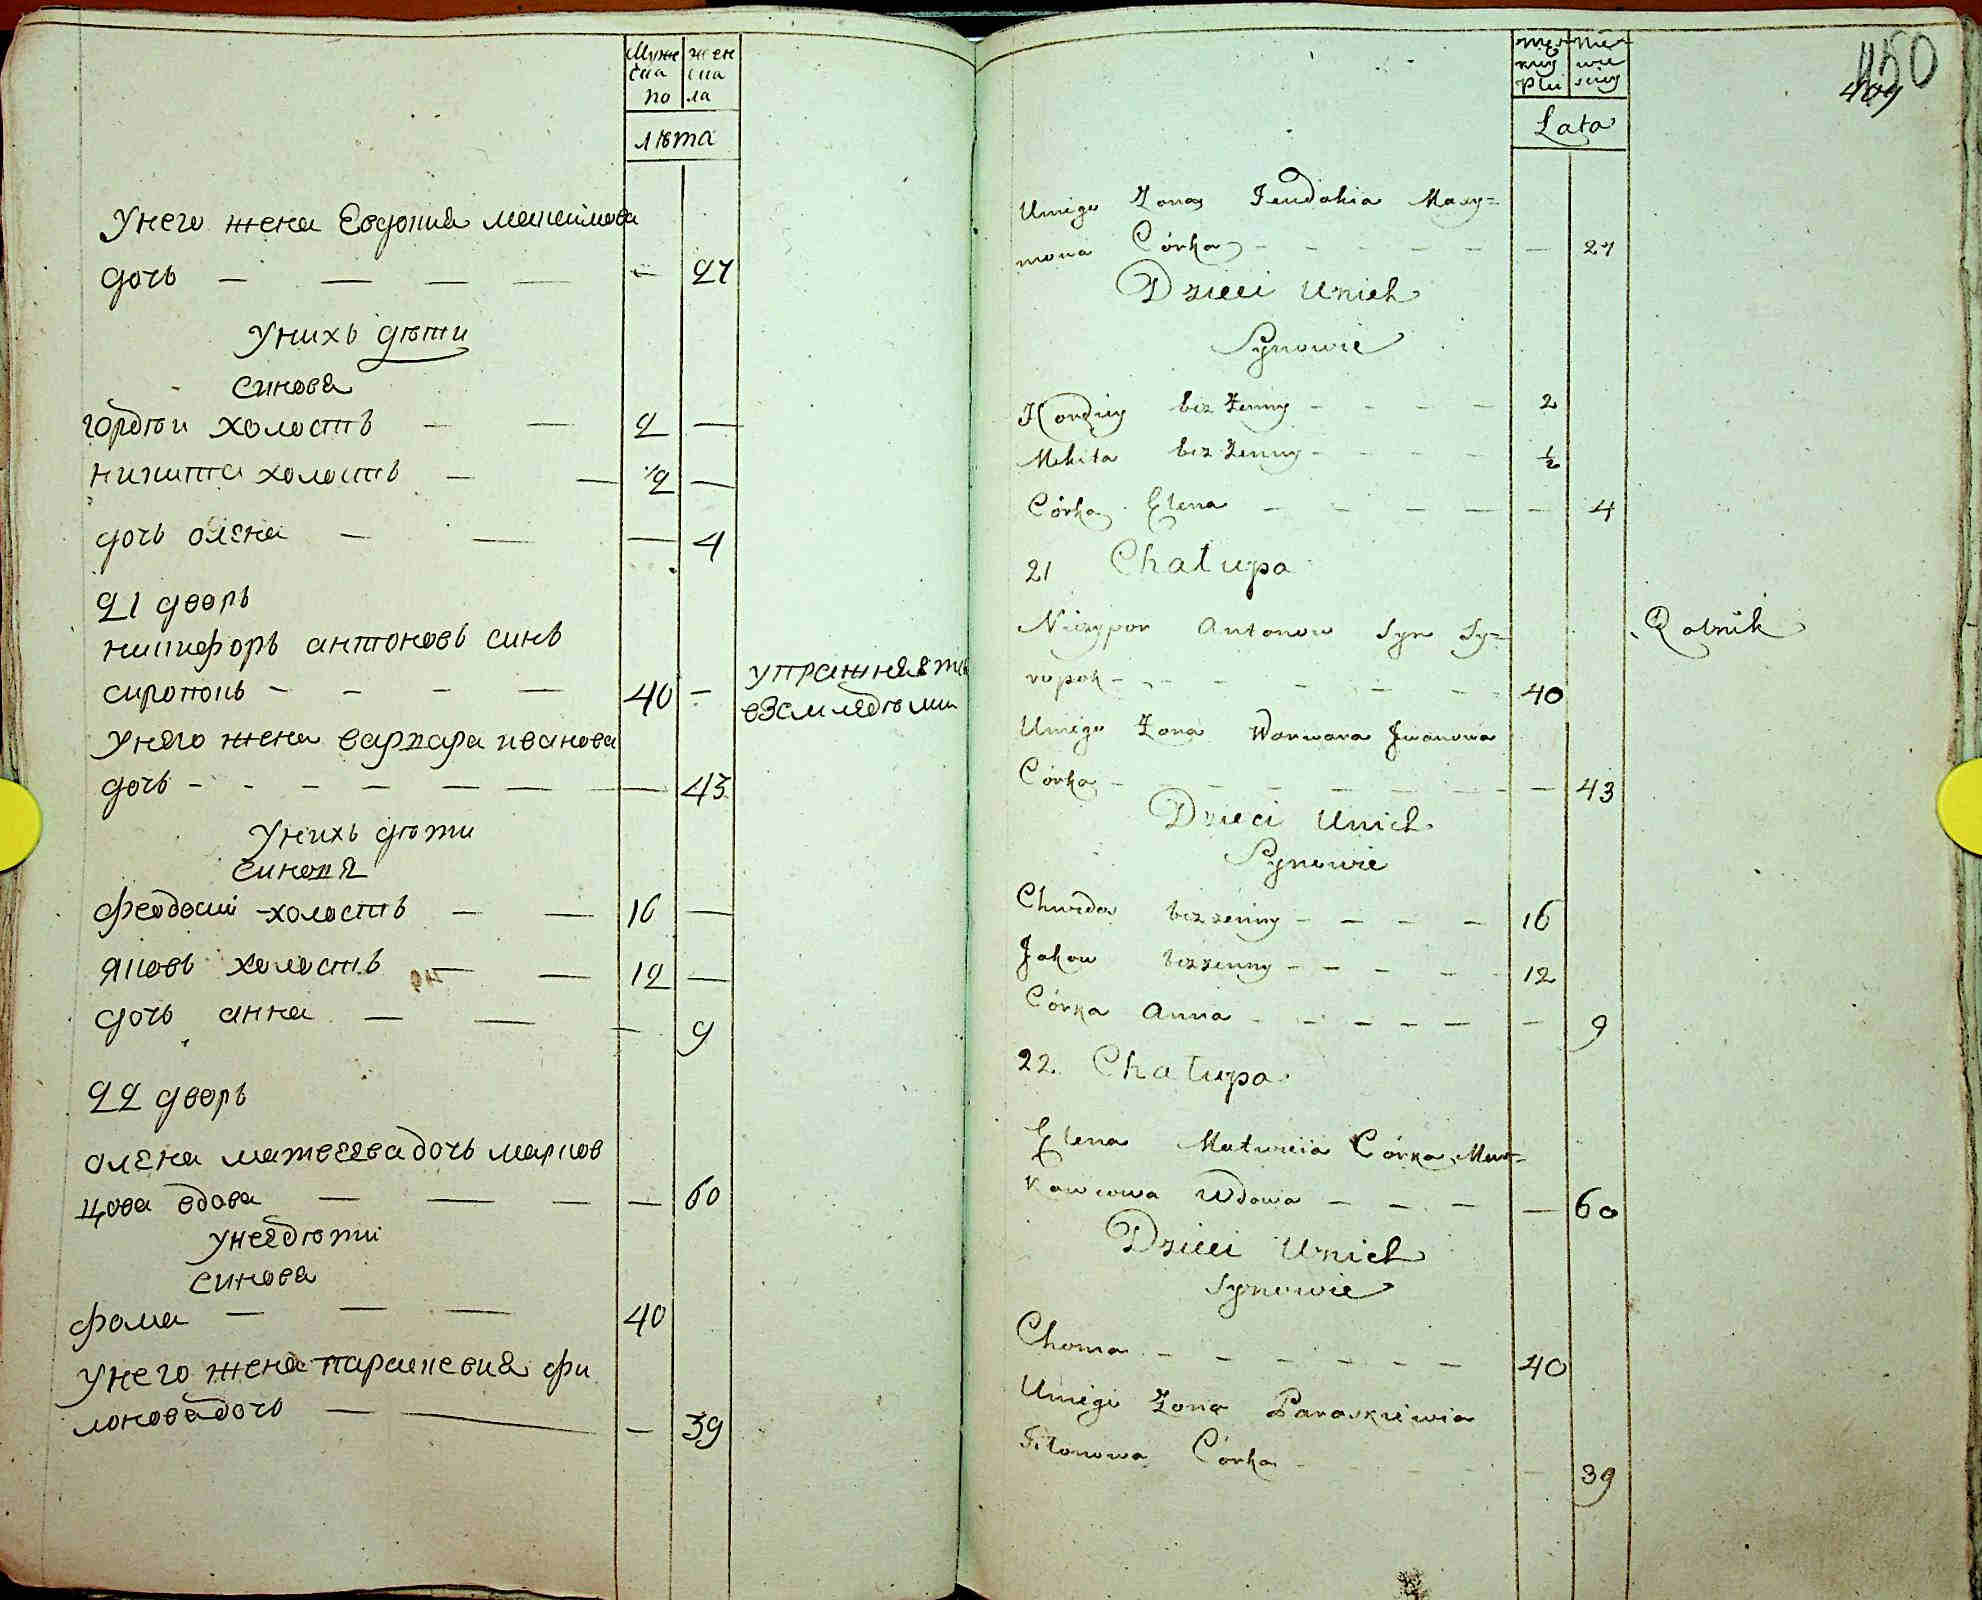 Муже
ска
го
жен
ска
ла
лѣта
У него жена Евдокия максимова
дочь — — — — — 27
У нихъ дѣти
синовя
гордѣи холостъ — — 2 —
никита холостъ — — ½ —
дочь олена — — — 4
21 дворъ
никифоръ антоновъ синъ
сиропокъ - - - — 40 — упражняетъ
взємлядѣлии
У нєго жена варвара иванова
дочь - - - - — — — — 43
У нихъ дѣти
синовя
феодосий холостъ — — 16 —
яковъ холостъ — — 12 —
дочь анна — — — 9
22 дворъ
олена матвеева дочь марков
цова вдова — — — — 60
У нея дѣти
синовя
фома — — — 40
У него жена параскевия фи
лонова дочь — — — 39
450
409
męz
kiey
płci
nie
wie
sciey
Lata
Uniego Zona Jeudokia Maxy=
mowa Córka - - - - - — 27
Dzieci Unich
Synowie
Hordiey bez Zenny - - - - 2
Mikita bez Zenny - - - - ½
Córka Elena - - - - - - 4
21 Chałupa
Niczypor Antonow Syn Sy= Rolnik
ropok - - - - - - - 40
Uniego Zona Warwara Jwanowa
Córka - - - - - - - - 43
Dzieci Unich
Synowie
Chwedos bezzenny - - - - 16
Jakow bezzenny - - - - - 12
Córka Anna - - - - - - - 9
22. Chałupa
Elena Matwieia Córka Mar=
kowcowa Wdowa - - - - — 60
Dzieci Unich
Synowie
Choma - - - - - - - 40
Uniego Zona Paraskiewia
Filonowa Córka - - - - - 39